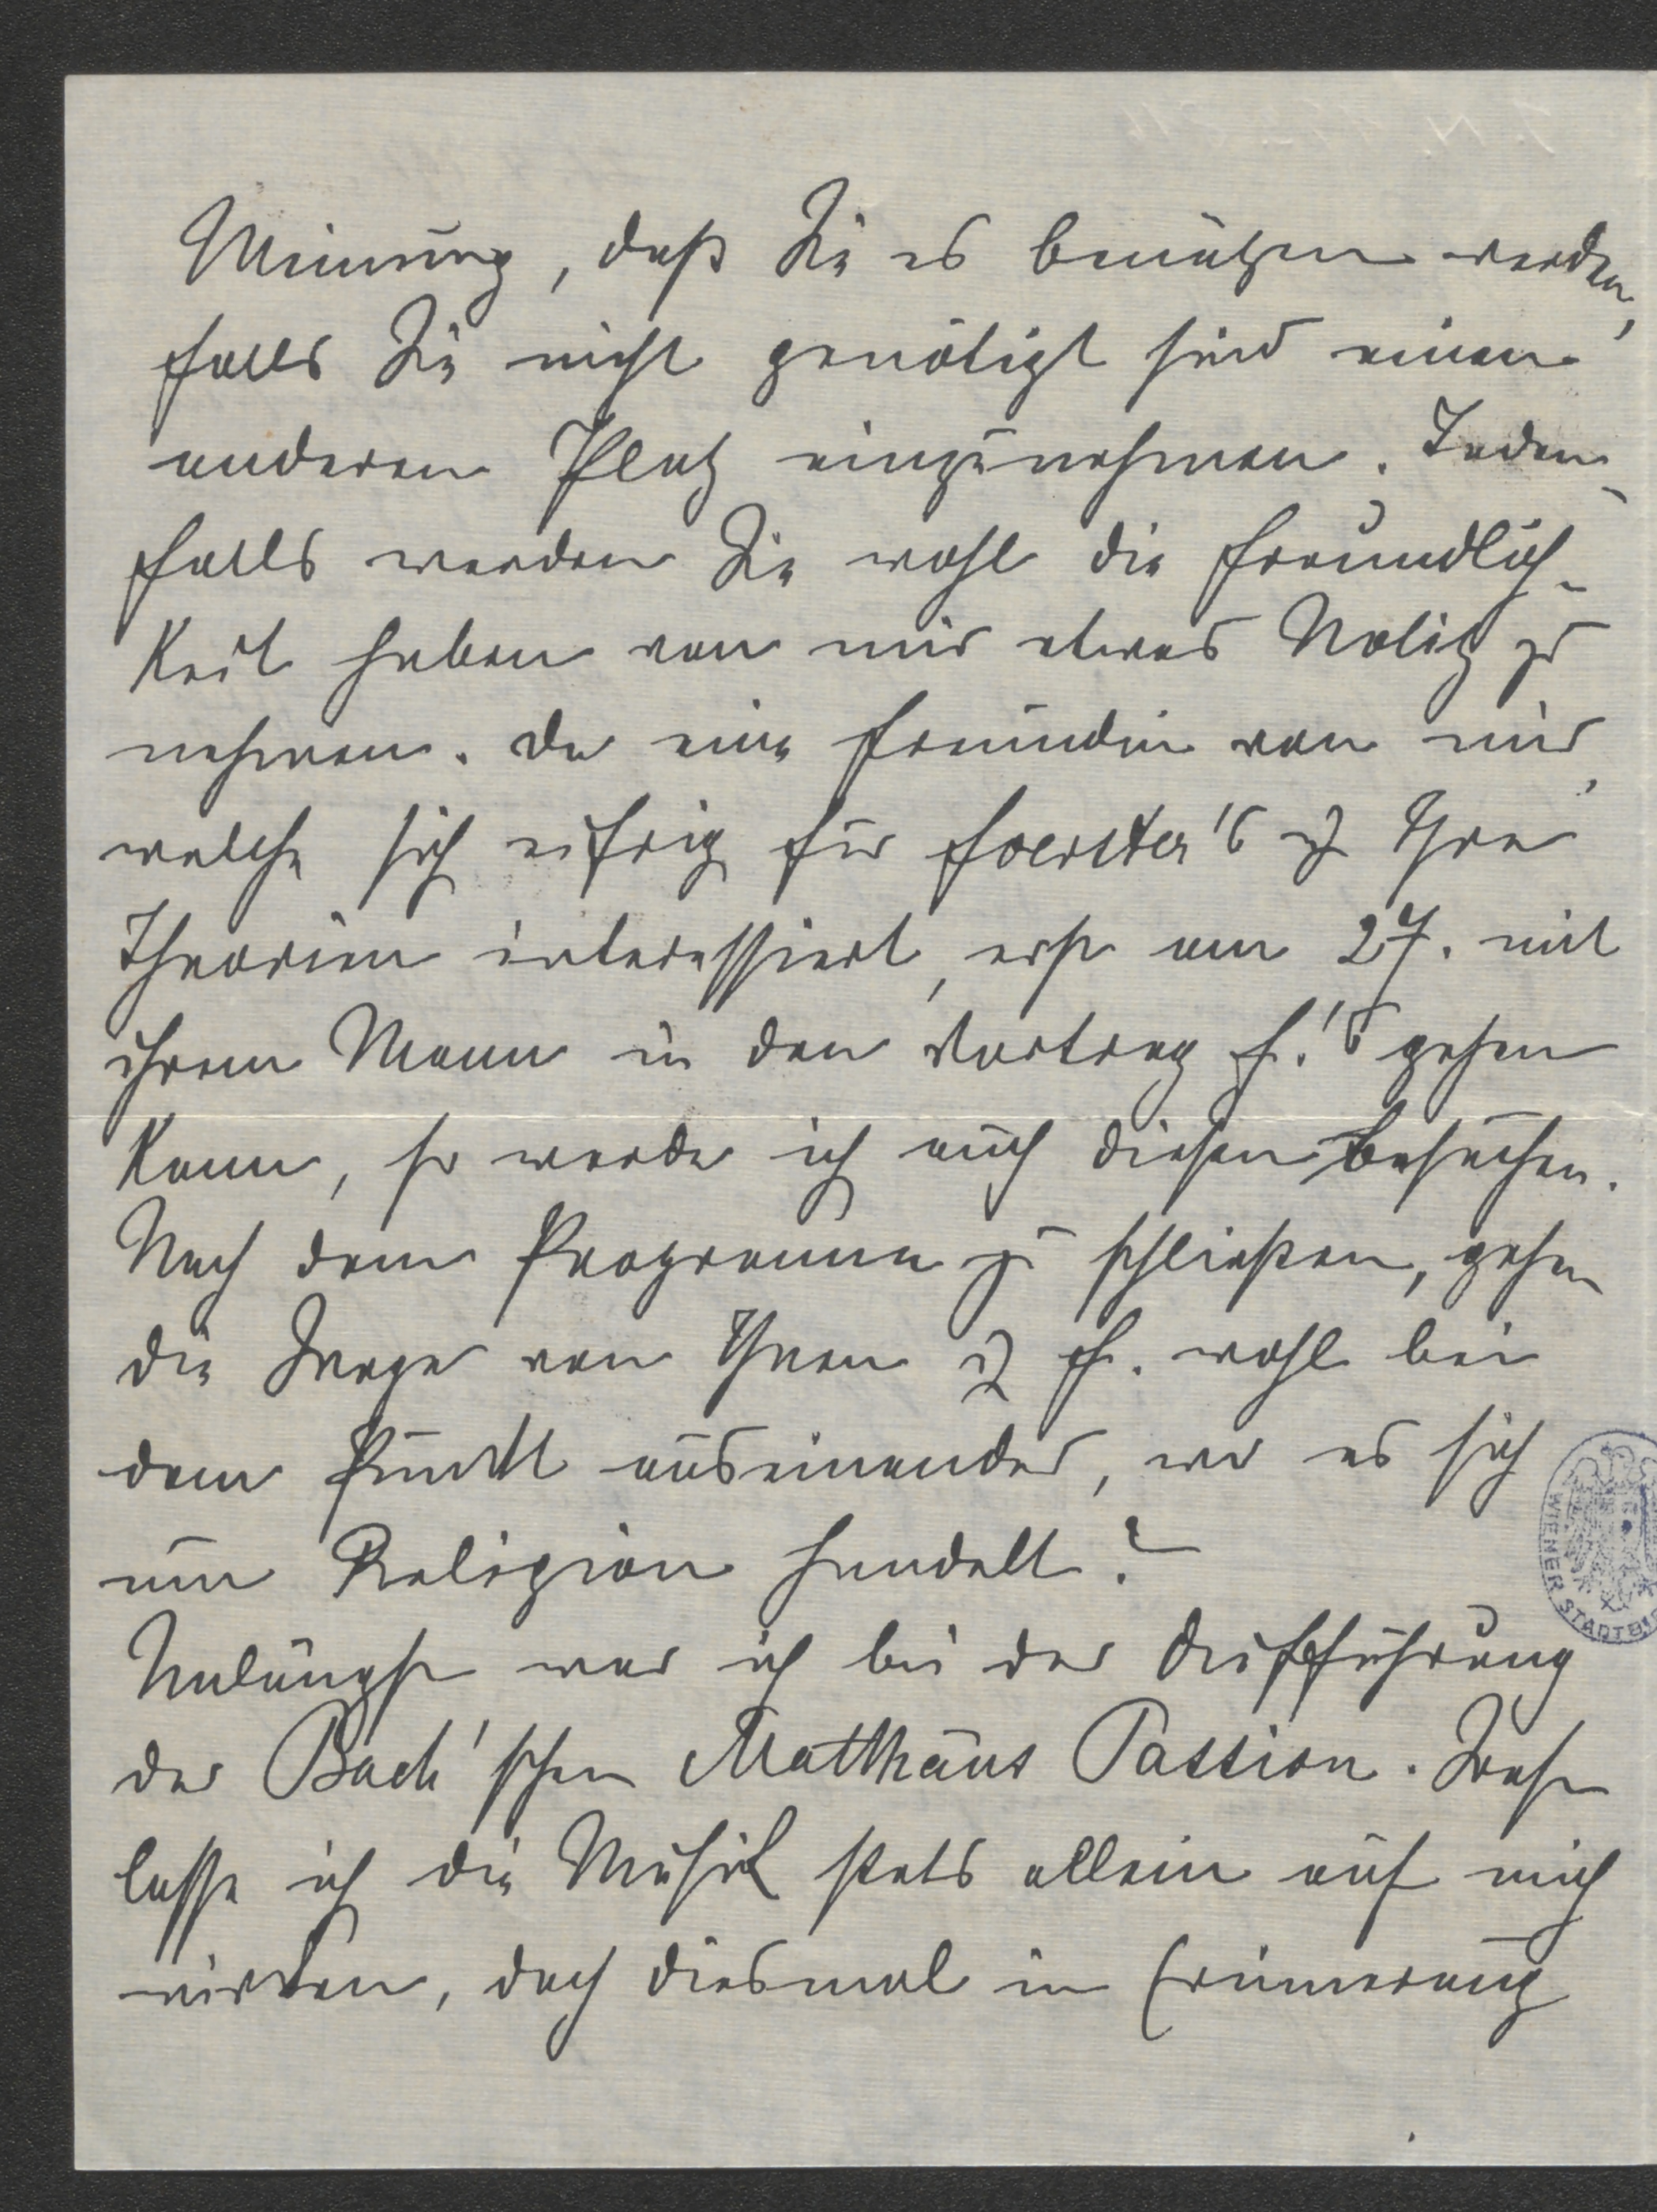 Meinung, daß Sie es benützen werden,
falls Sie nicht genötigt sind einen
anderen Platz einzunehmen. Jeden-
falls werden Sie wohl die Freundlich-
keit haben von mir etwas Notiz zu
nehmen. Da eine Freundin von mir,
welche sich eifrig für Foerster's u Ihre
Theorien interessiert, erst am 27. mit
ihrem Mann in den Vortrag F.'s gehen
kann, so werde ich auch diesen besuchen.
Nach dem Programm zu schließen, gehen
die Wege von Ihnen u F. wohl bei
dem Punkt auseinander, wo es sich
um Religion handelt?
Unlängst war ich bei der Aufführung
der Bach'schen Matthäus Passion. Sonst
lasse ich die Musik stets allein auf mich
wirken, doch diesmal in Erinnerung
WIENER STADTB